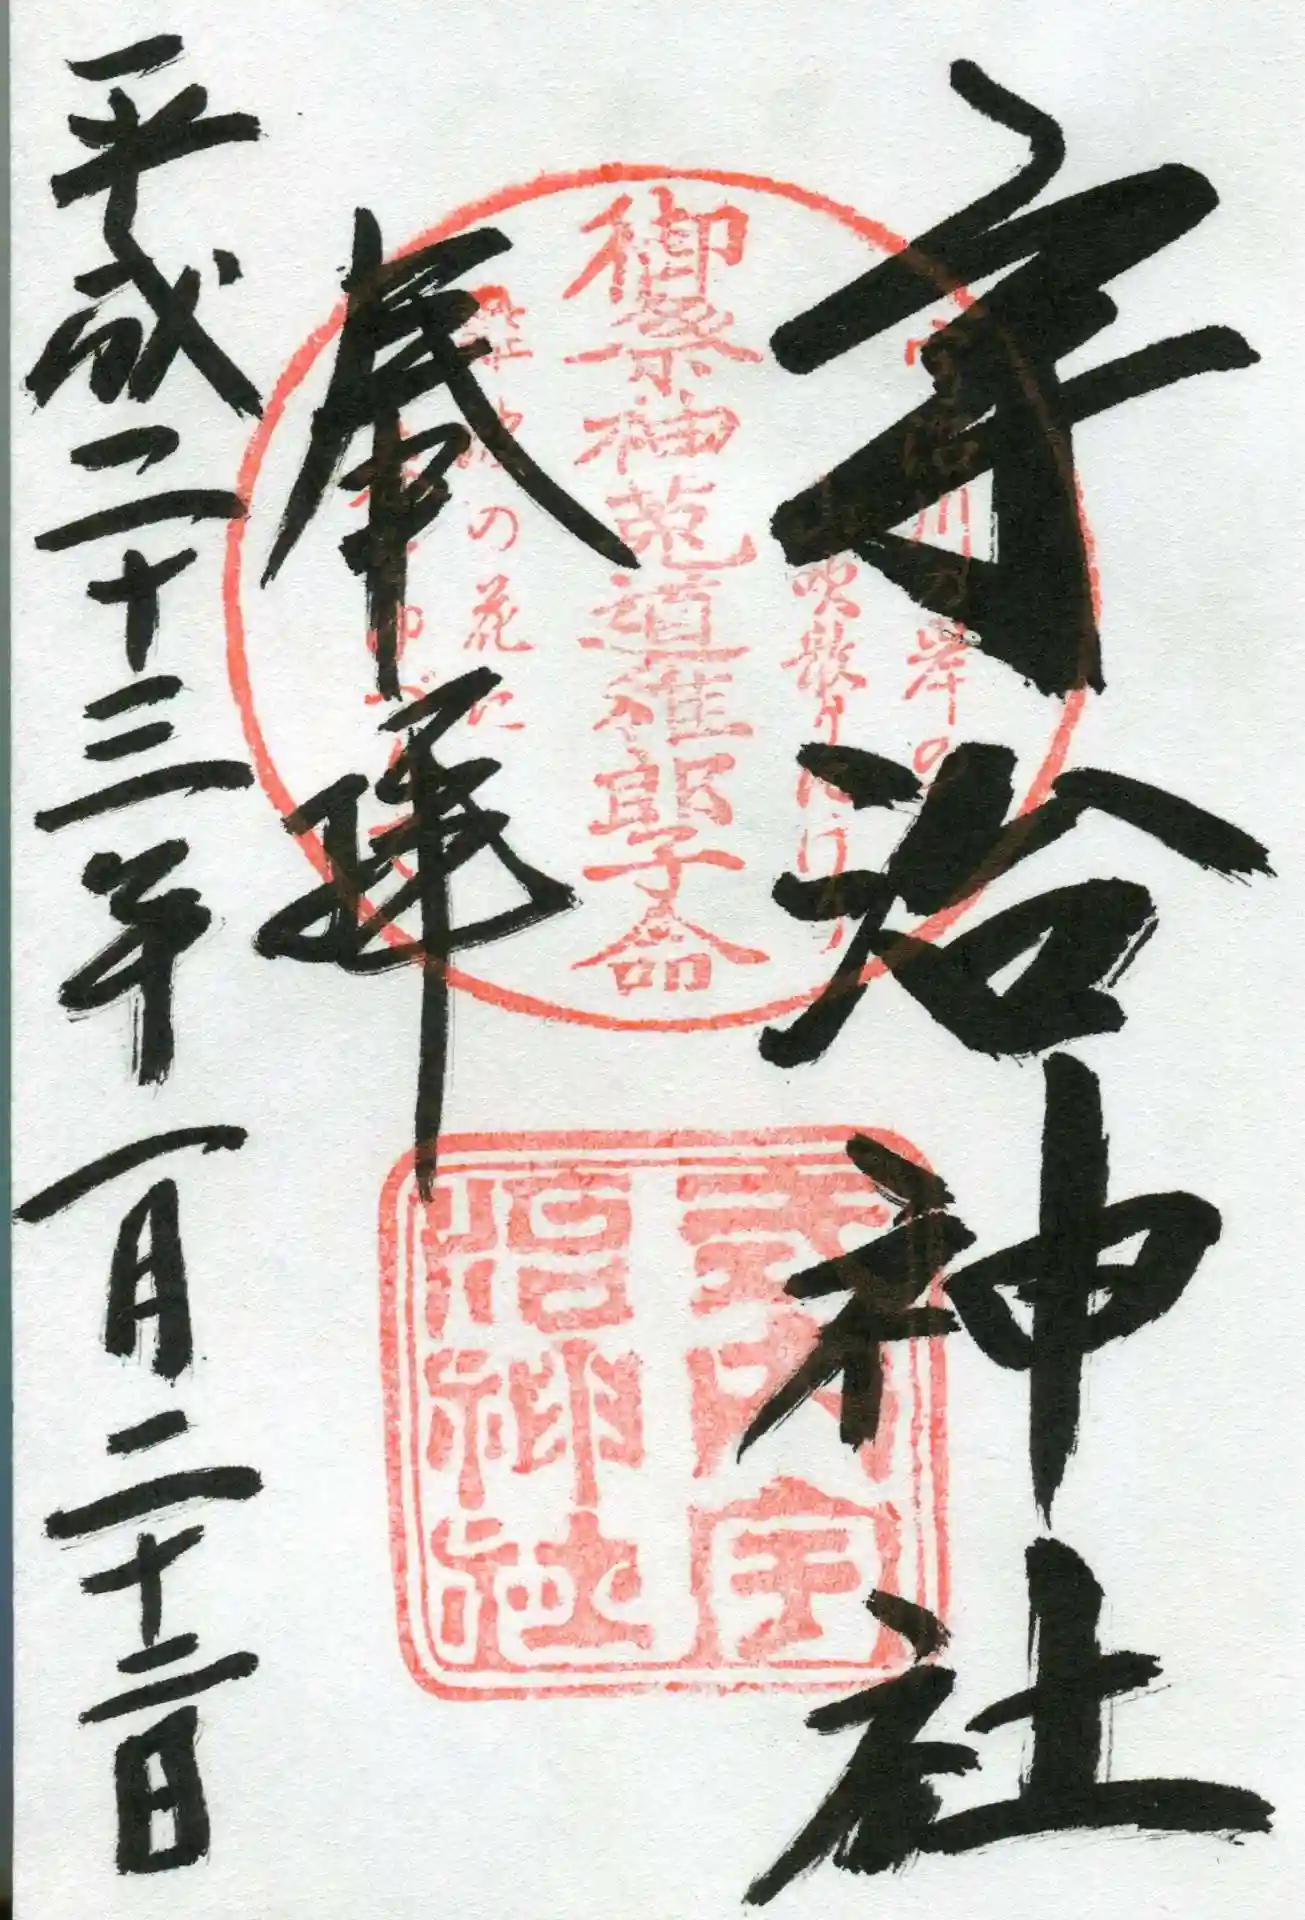 宇治神社
宇治川の岸の
吹散
御祭神菟道稚郎子命
の花に
奉拝
式内宇
治神社
平成二十三年一月二十二日